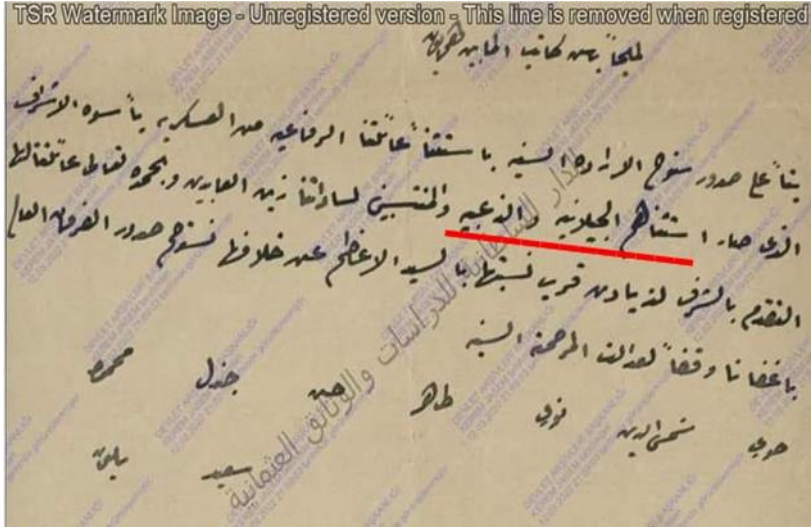 TSR Watermark Image - Unregistered version - This line is removed when registered
كاتب المابين
بناءً على صدور سنوح الارادة السنيه باستثناء عائلتنا الرفاعيه من العسكريه بأسوة الاشراف
الذى صار استثناهم الجيلانيه والزعبيه والمنتسبين لساداتنا زين العابدين وبحمده تعالى عائلتنا لها
التقدم بالشرف لزيادة قرب نسبتها بالسيد الاعظم عن خلافها نسترحم صدور الفرمان العالي
باعفانا وفقاً لعدالت المرحمة السنيه
محمود
جندل
حسن
طاهر
نوري
شمس الدين
سعيد
الدار السلطانية للدراسات والوثائق العثمانية
DEVLET ARŞİVLERİ BAŞKANLIĞI